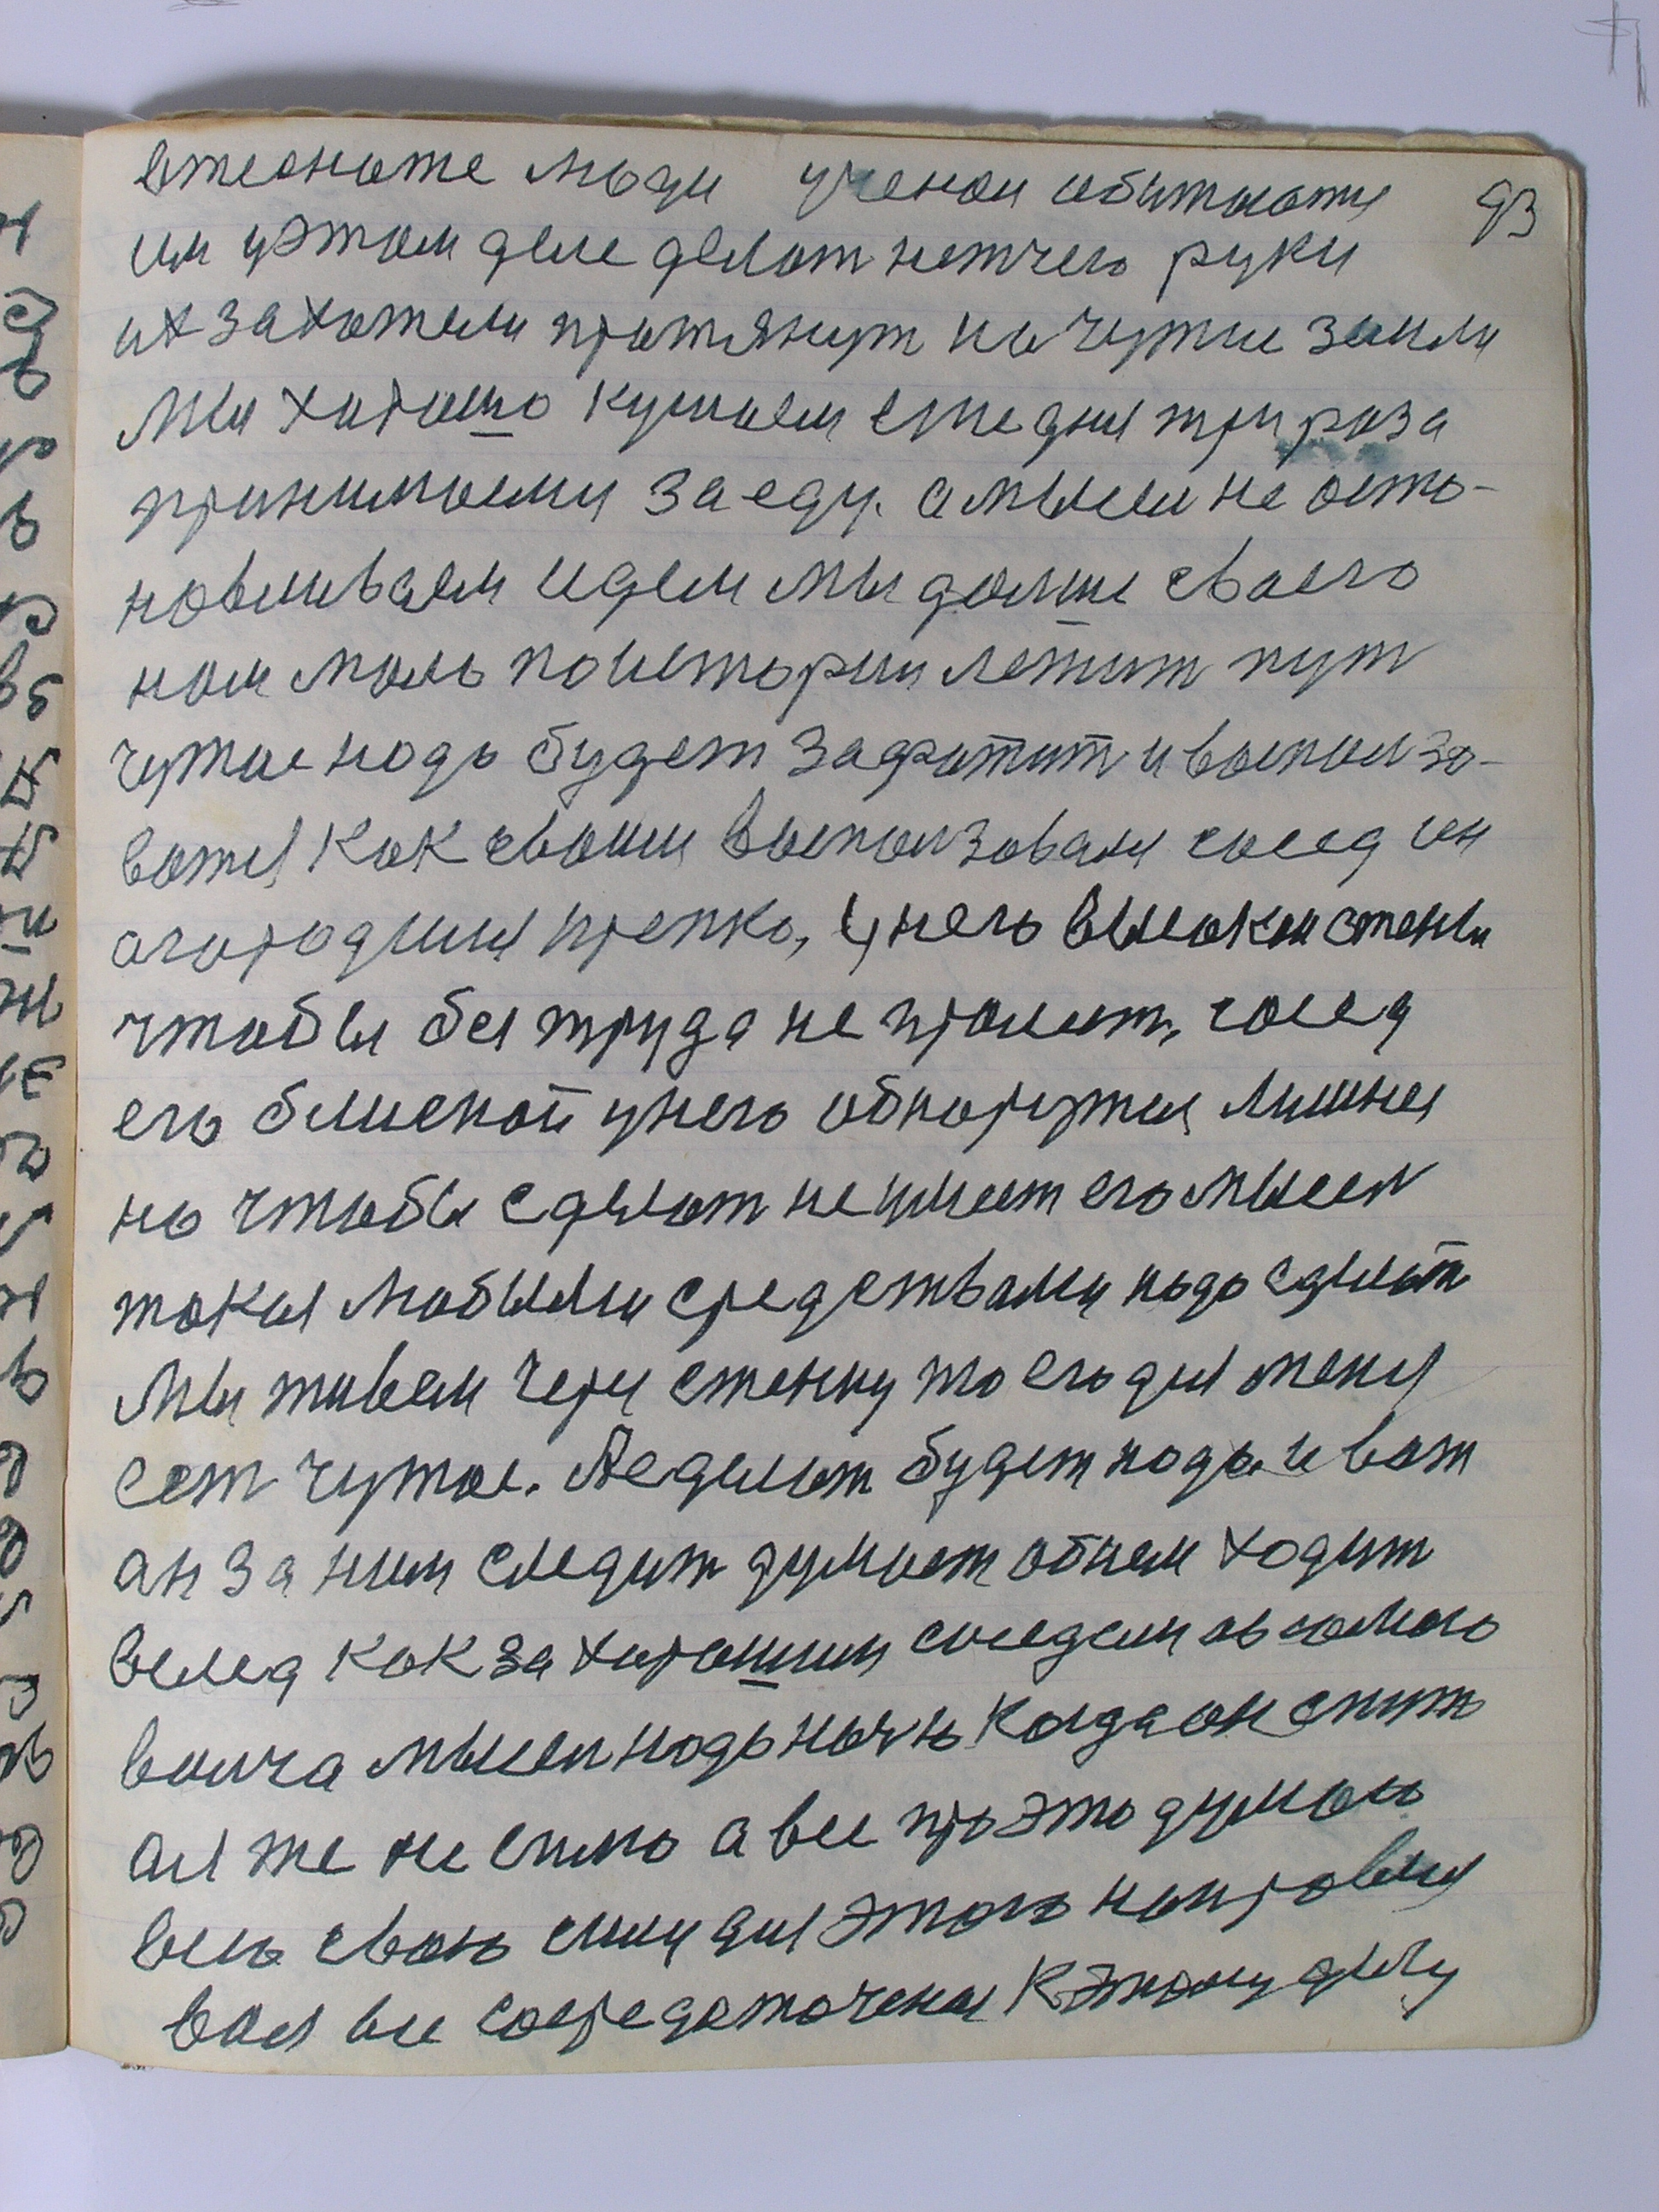 втеснате люди ученаи обитаются 93
им уэтом деле делат нетчего руки
их захотели протянут на чужие земли
Мы харашо кушаем втедня три раза
принимаеми за еду. а мысли не аста-
новливаем идем мы далше своего
нам мало поистории летит пут
чужое нада будет зафатит и воспользо-
ватся как своим воспользовался сосед он
огородился крепко, у него высокаи стены
чтобы без труда не пролезт, сосед
его близкай унего обнаружися лишнея
но чтобы сделат не умеет его мысел
такая любыми средствами надо сделат
Мы живем через стенку то его для меня
ест чужое. А делат будет нада и вот
ан за ним следит думает обнем ходит
вслед как за харошим соседем а у самого
волча мысел надо ночю когда он спит
ая же не сплю а все про это думаю
всю своюю силу для этого направля
вся все сосредоточеная к этому делу